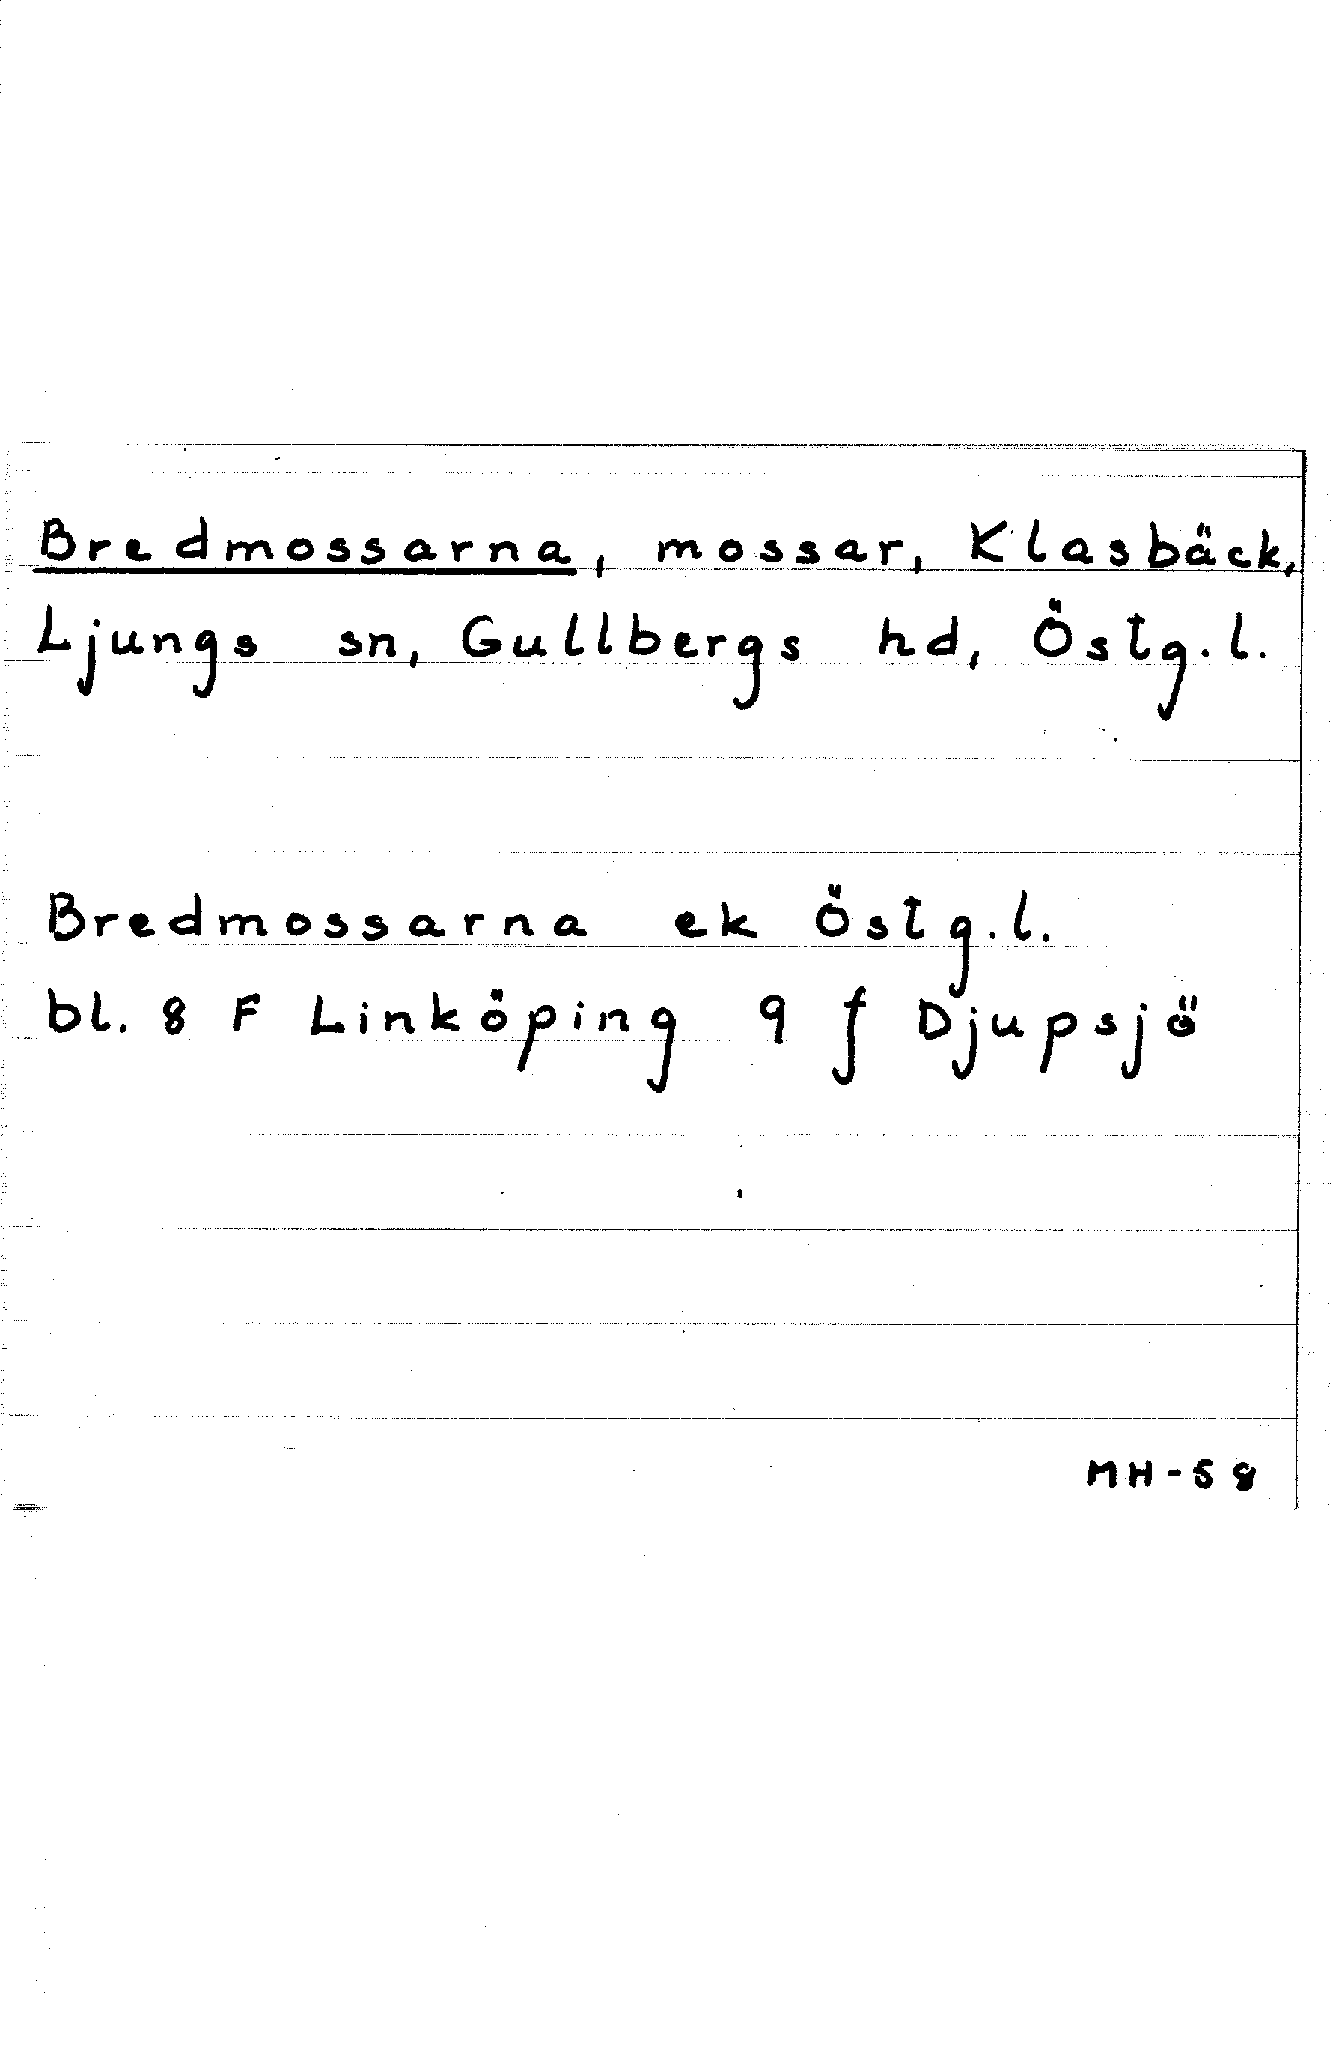 Bredmossarna, mossar, Klasbäck,
Ljungs sn, Gullbergs hd, Östg.l.
Bredmossarna ek Östg.l.
bl. 8 F Linköping 9 f Djupsjö
MH-58